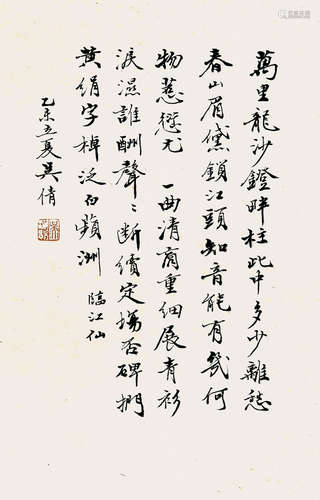 萬里龍沙鐙畔柱此中多少離愁
春山眉黛鎖江頭知音能有幾何
物惹愆尤 一曲清商重細展青衫
淚濕誰酬聲〻斷續定場否碑捫
黃絹字棹泛白蘋洲 臨江仙
乙未立夏吳倩